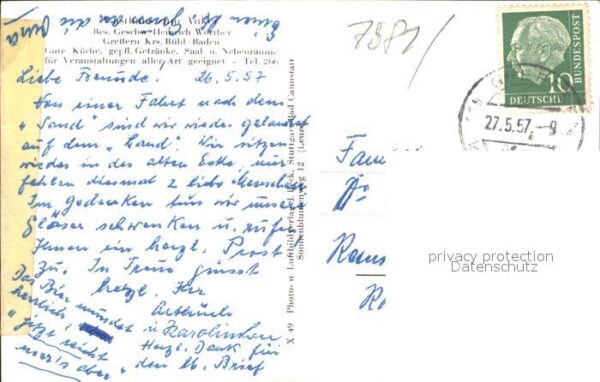 Gasthaus zum Anker
Bes. Geschw. Heinrich Würther
Greffern Krs. Bühl Baden
Gute Küche, gepfl. Getränke, Saal u. Nebenräume
für Veranstaltungen aller Art geeignet - Tel. 266
Liebe Freunde! 26.5.57
Von einer Fahrt nach dem
"Sand" sind wir wieder gelandet
auf dem "Land". Wir sitzen
wieder in der alten Ecke, nur
fehlen diesmal 2 liebe Menschen.
Im Gedenken tun wir unsere
Gläser schwenken u. rufen
Ihnen ein herzl. Prost
zu. In Treue grüsst
herzl. Ihr
u. Karolinchen
Das Bier mundet
herrlich!
"jetzt reicht
mer's aber"
Herzl. Dank für
den lb. Brief
X 49 Photo- u. Luftbildverlag Stuttgart-Bad Cannstatt
Sonnenblumenweg 12
7581/
Fam
Dr.
DEUTSCHE BUNDESPOST
10
27.5.57.-9
privacy protection
Datenschutz